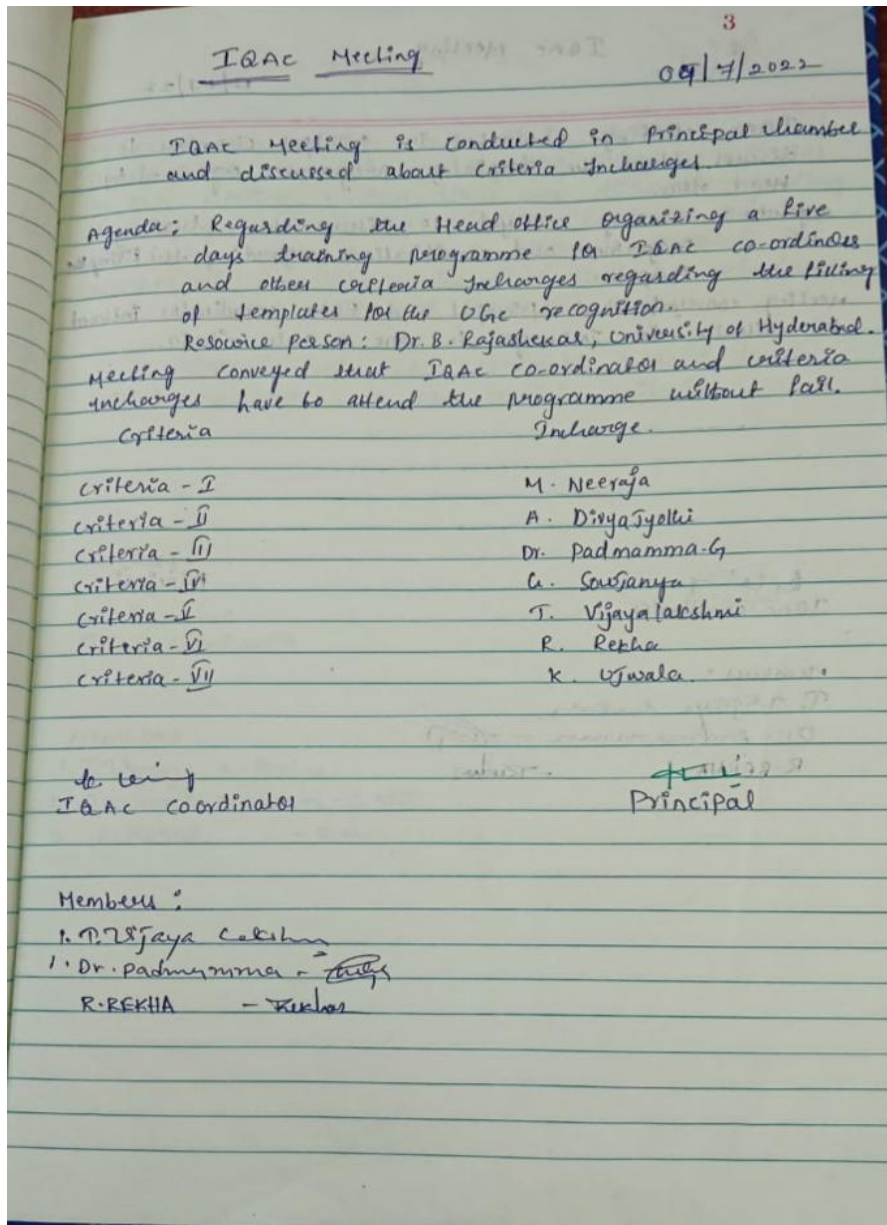 3
IQAC Meeting
/7/2022
IQAC Meeting is conducted in Principal chamber
and discussed about Criteria Incharges.
Agenda: Regarding the Head office organizing a five
days training programme for IQAC co-ordinators
and other criteria Incharges regarding the filling
of templates for the UGC recognition.
Resource Person: Dr. B. Rajashekar, University of Hyderabad.
Meeting conveyed that IQAC co-ordinator and criteria
incharges have to attend the programme without fail.
Criteria Incharge.
Criteria - I M. Neeraja
Criteria - II A. DivyaJyothi
Criteria - III Dr. Padmamma.G
Criteria - IV G. Sowjanya
Criteria - V T. Vijayalakshmi
Criteria - VI R. Rekha
Criteria - VII K. Ujwala.
IQAC Coordinator Principal
Members:
1. T. Vijaya Lakshmi
1. Dr. Padmamma -
R. REKHA - Rekha